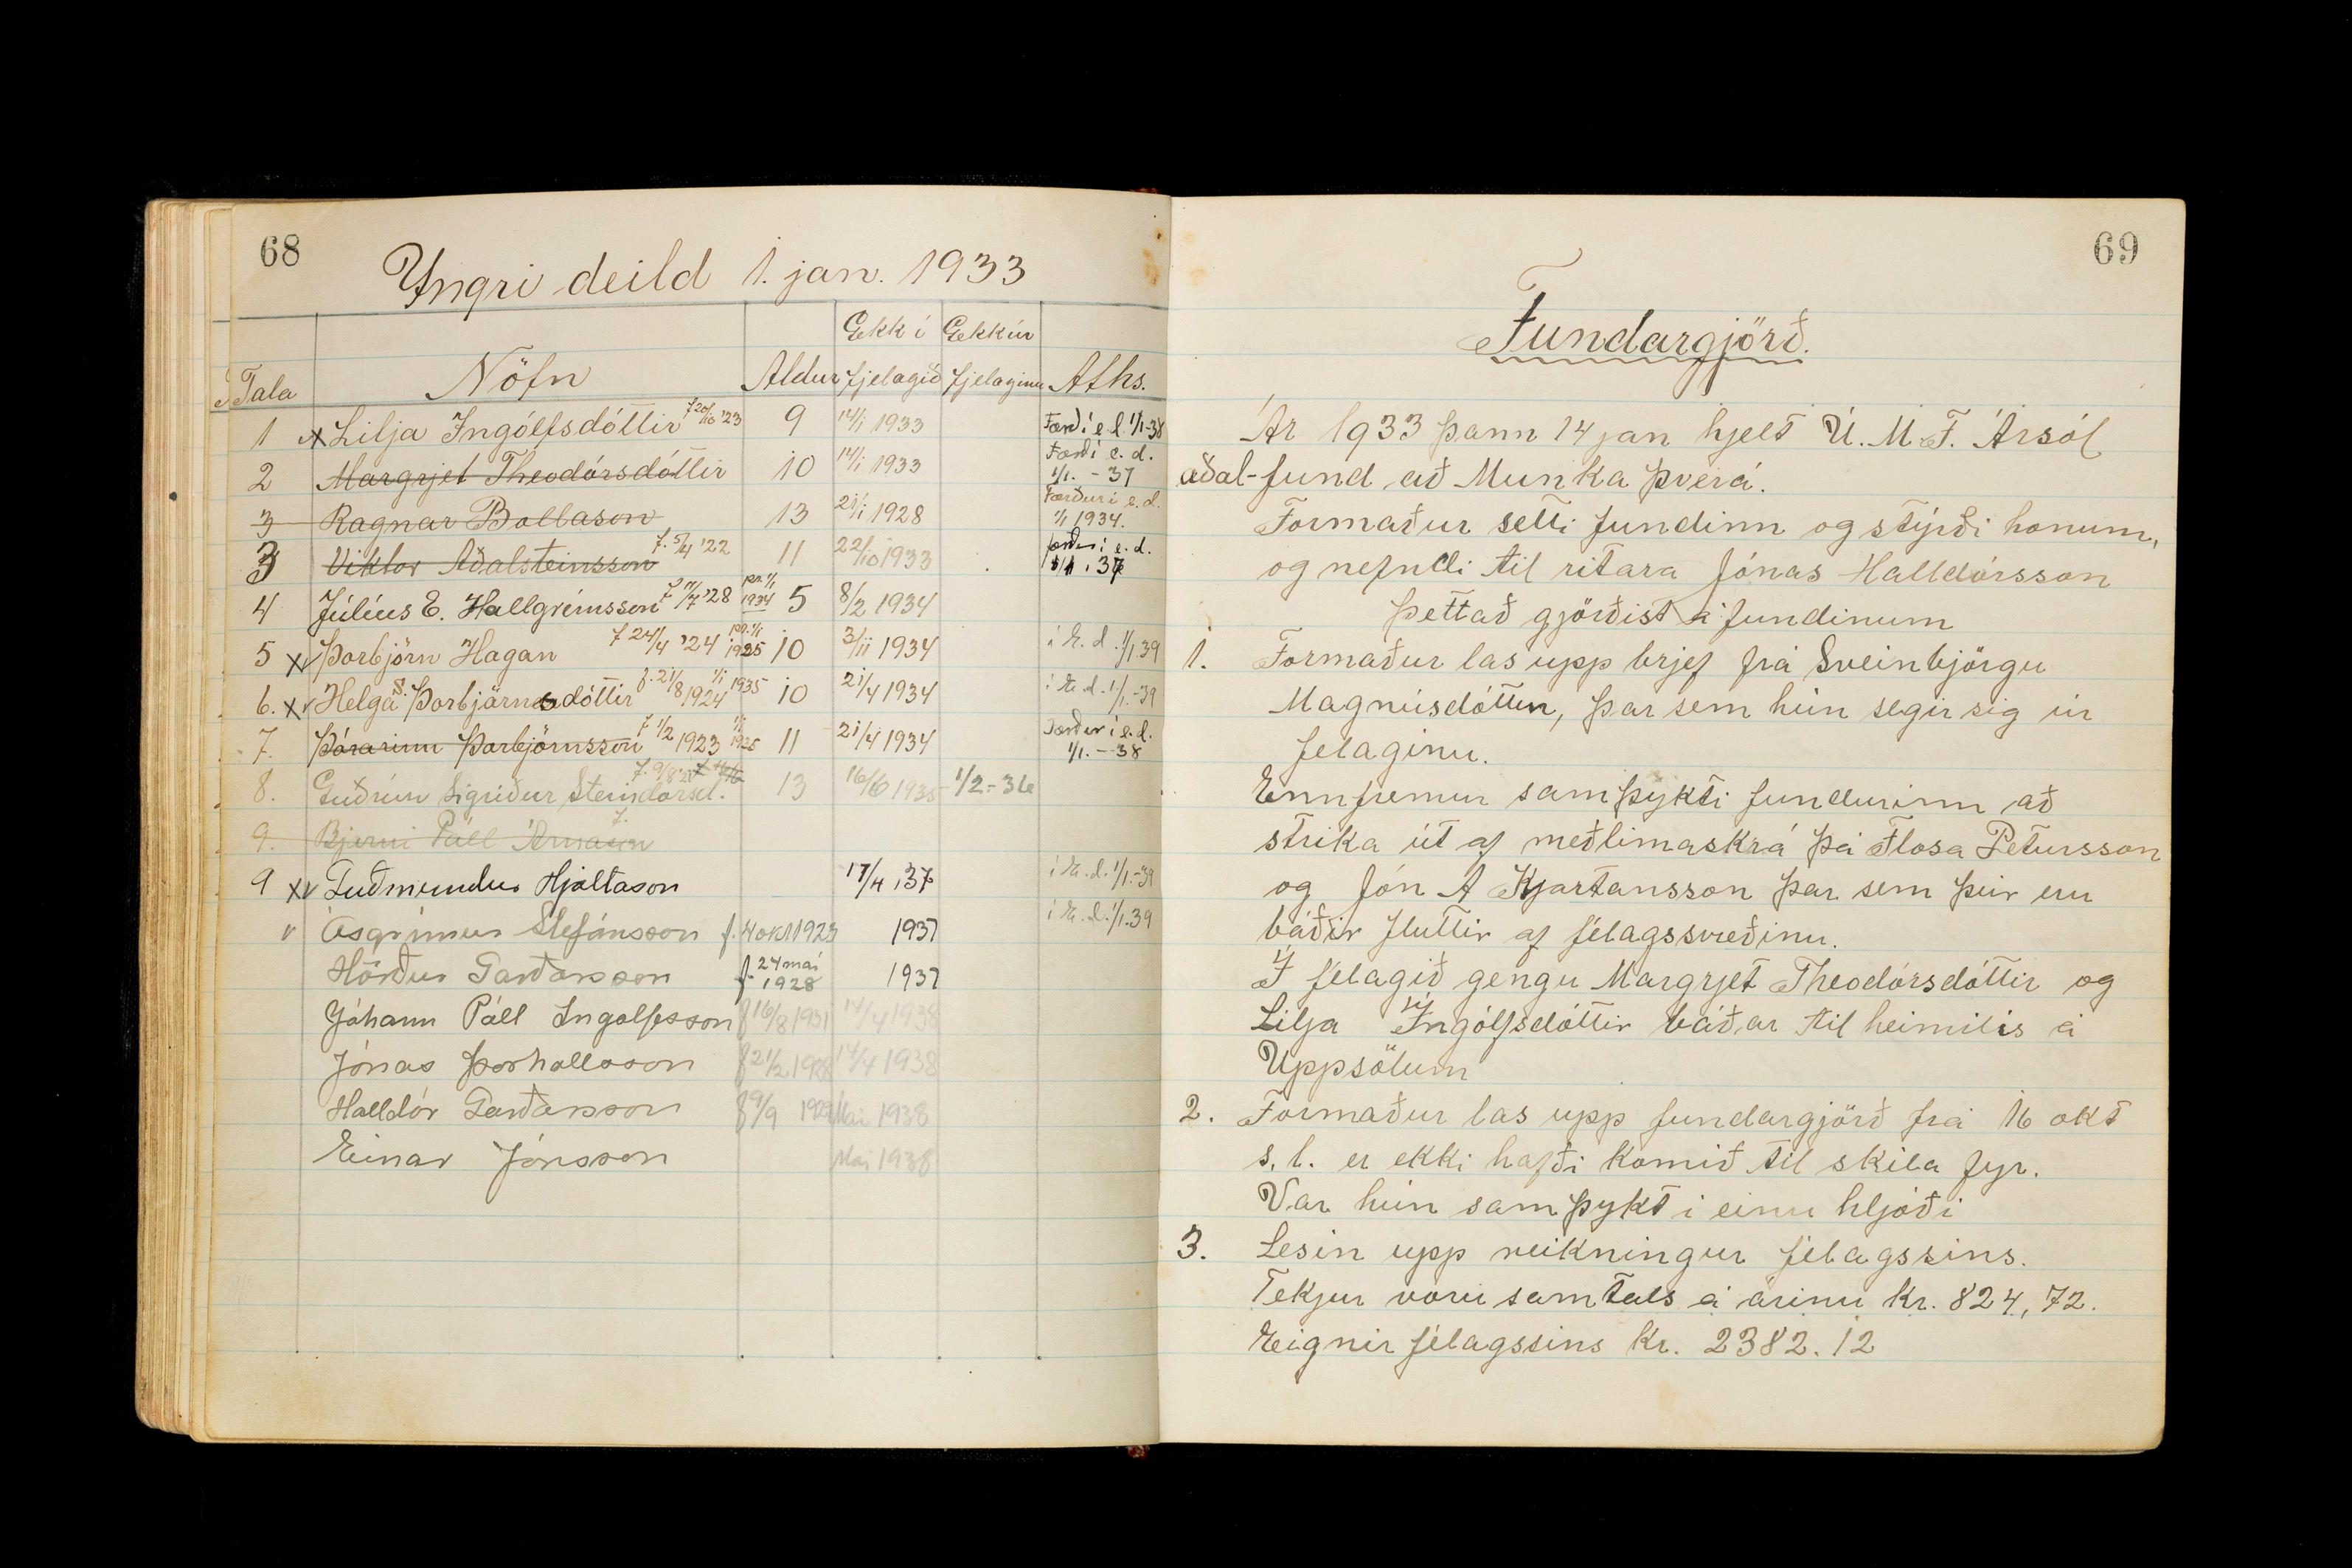 68
Yngri deild 1. jan. 1933
Gekk í Gekk úr
Tala Nöfn Aldur fjelagið fjelaginu Aths.
1 x Lilja Ingólfsdóttir f 20/10 '23 9 14/1 1933 Færð í e.d. 1/1-38
2 Margrjet Theodórsdóttir 10 14/1 1933 Færð í e.d. 1/1. - 37
3 Ragnar Bollason, 13 21/1 1928 Færður í e.d. 1/1 1934.
3 Viktor Aðalsteinsson f. 5/4 '22 11 22/10 1933 færður í e.d. 1/1 . 37
4 Júlíus E. Hallgrímsson f 11/7 '28 pr. 1/1 1934 5 8/2 1934
5 xv Þorbjörn Hagan f 24/4 '24 pr. 1/1 1935 10 3/11 1934 í E.d. 1/1 39
6. xv Helga S. Þorbjarnadóttir f. 21/8 1924 1/1 1935 10 21/4 1934 í E.d. 1/1.-39
7. Þórarinn Þorbjörnsson f. 1/2 1923 1/1 1935 11 21/4 1934 Færður í e.d. 1/1. - 38
8. Guðrún Sigríður Steindórsd. f. 9/8 13 16/6 1935 1/2 - 36
9. Bjarni Páll f.
9 xv Guðmundur Hjaltason 17/4 .37 í E.d. 1/1.-39
v Ásgrímur Stefánsson f. 4 okt 1923 1937 í E.d. 1/1.39
Hörður Garðarsson f. 24 maí 1928 1937
Jóhann Páll Ingolfsson f 16/8 1931 14/4 1938
Jónas Þorhallsson f 21/2 1928 14/4 1938
Halldór Garðarsson f 9/9 1929 Mai 1938
Einar Jónsson Mai 1938
69
Fundargjörð.
Ár 1933 þann 14 jan hjelt U. M. F. Ársól
aðal-fund að Munka þverá.
Formaður setti fundinn og stýrði honum,
og nefndi til ritara Jónas Halldórsson
Þettað gjörðist á fundinum
1. Formaður las upp brjef frá Sveinbjörgu
Magnúsdóttur, þar sem hún segir sig úr
felaginu.
Ennfremur samþykti fundurinn að
strika út af meðlimaskrá þá Flosa Petursson
og Jón A Kjartansson þar sem þeir eru
báðir fluttir af félagssvæðinu.
Í félagið gengu Margrjet Theodórsdóttir og
Lilja Ingólfsdóttir báðar til heimilis á
Uppsölum
2. Formaður las upp fundargjörð frá 16 okt
s. l. er ekki hafði komið til skila fyr.
Var hún samþykt í einu hljóði
3. Lesin upp reikningur félagssins.
Tekjur voru samtals á árinu kr. 824,72.
Eignir félagssins kr. 2382.12